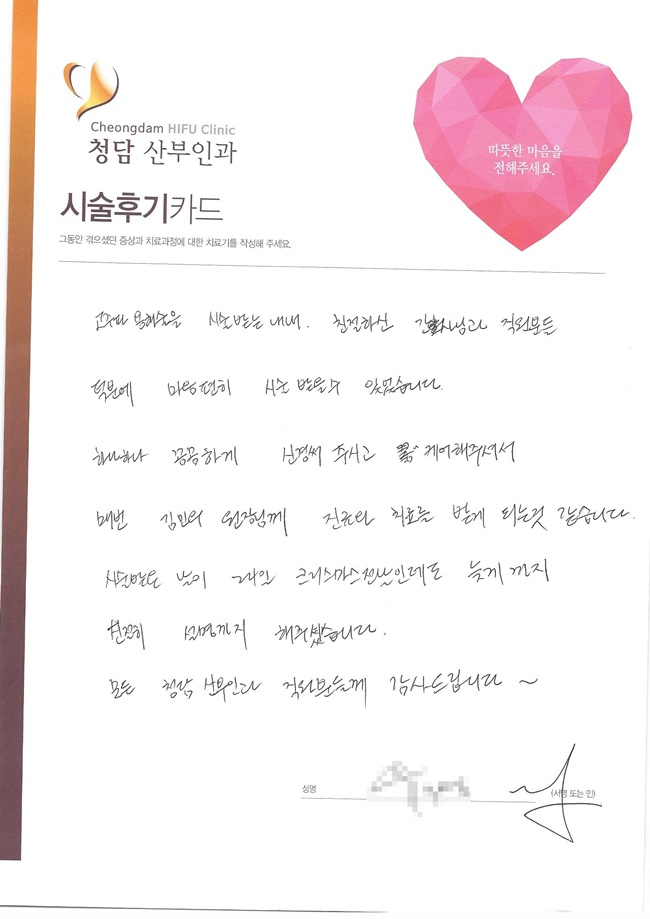 Cheongdam HIFU Clinic
청담 산부인과
따뜻한 마음을
전해주세요.
시술후기카드
그동안 겪으셨던 증상과 치료과정에 대한 치료기를 작성해 주세요.
시술받는 내내. 친절하신 간호사님과 직원분들
덕분에 마음편히 시술 받을수 있었습니다.
하나하나 꼼꼼하게 신경써 주시고 케어해주셔서
매번 김민우 원장님께 진료와 치료를 받게 되는것 같습니다.
시술받은 날이 24일 크리스마스전날인데도 늦게까지
친절히 설명까지 해주셨습니다.
모든 청담 산부인과 직원분들께 감사드립니다 ~
성명
(서명 또는 인)